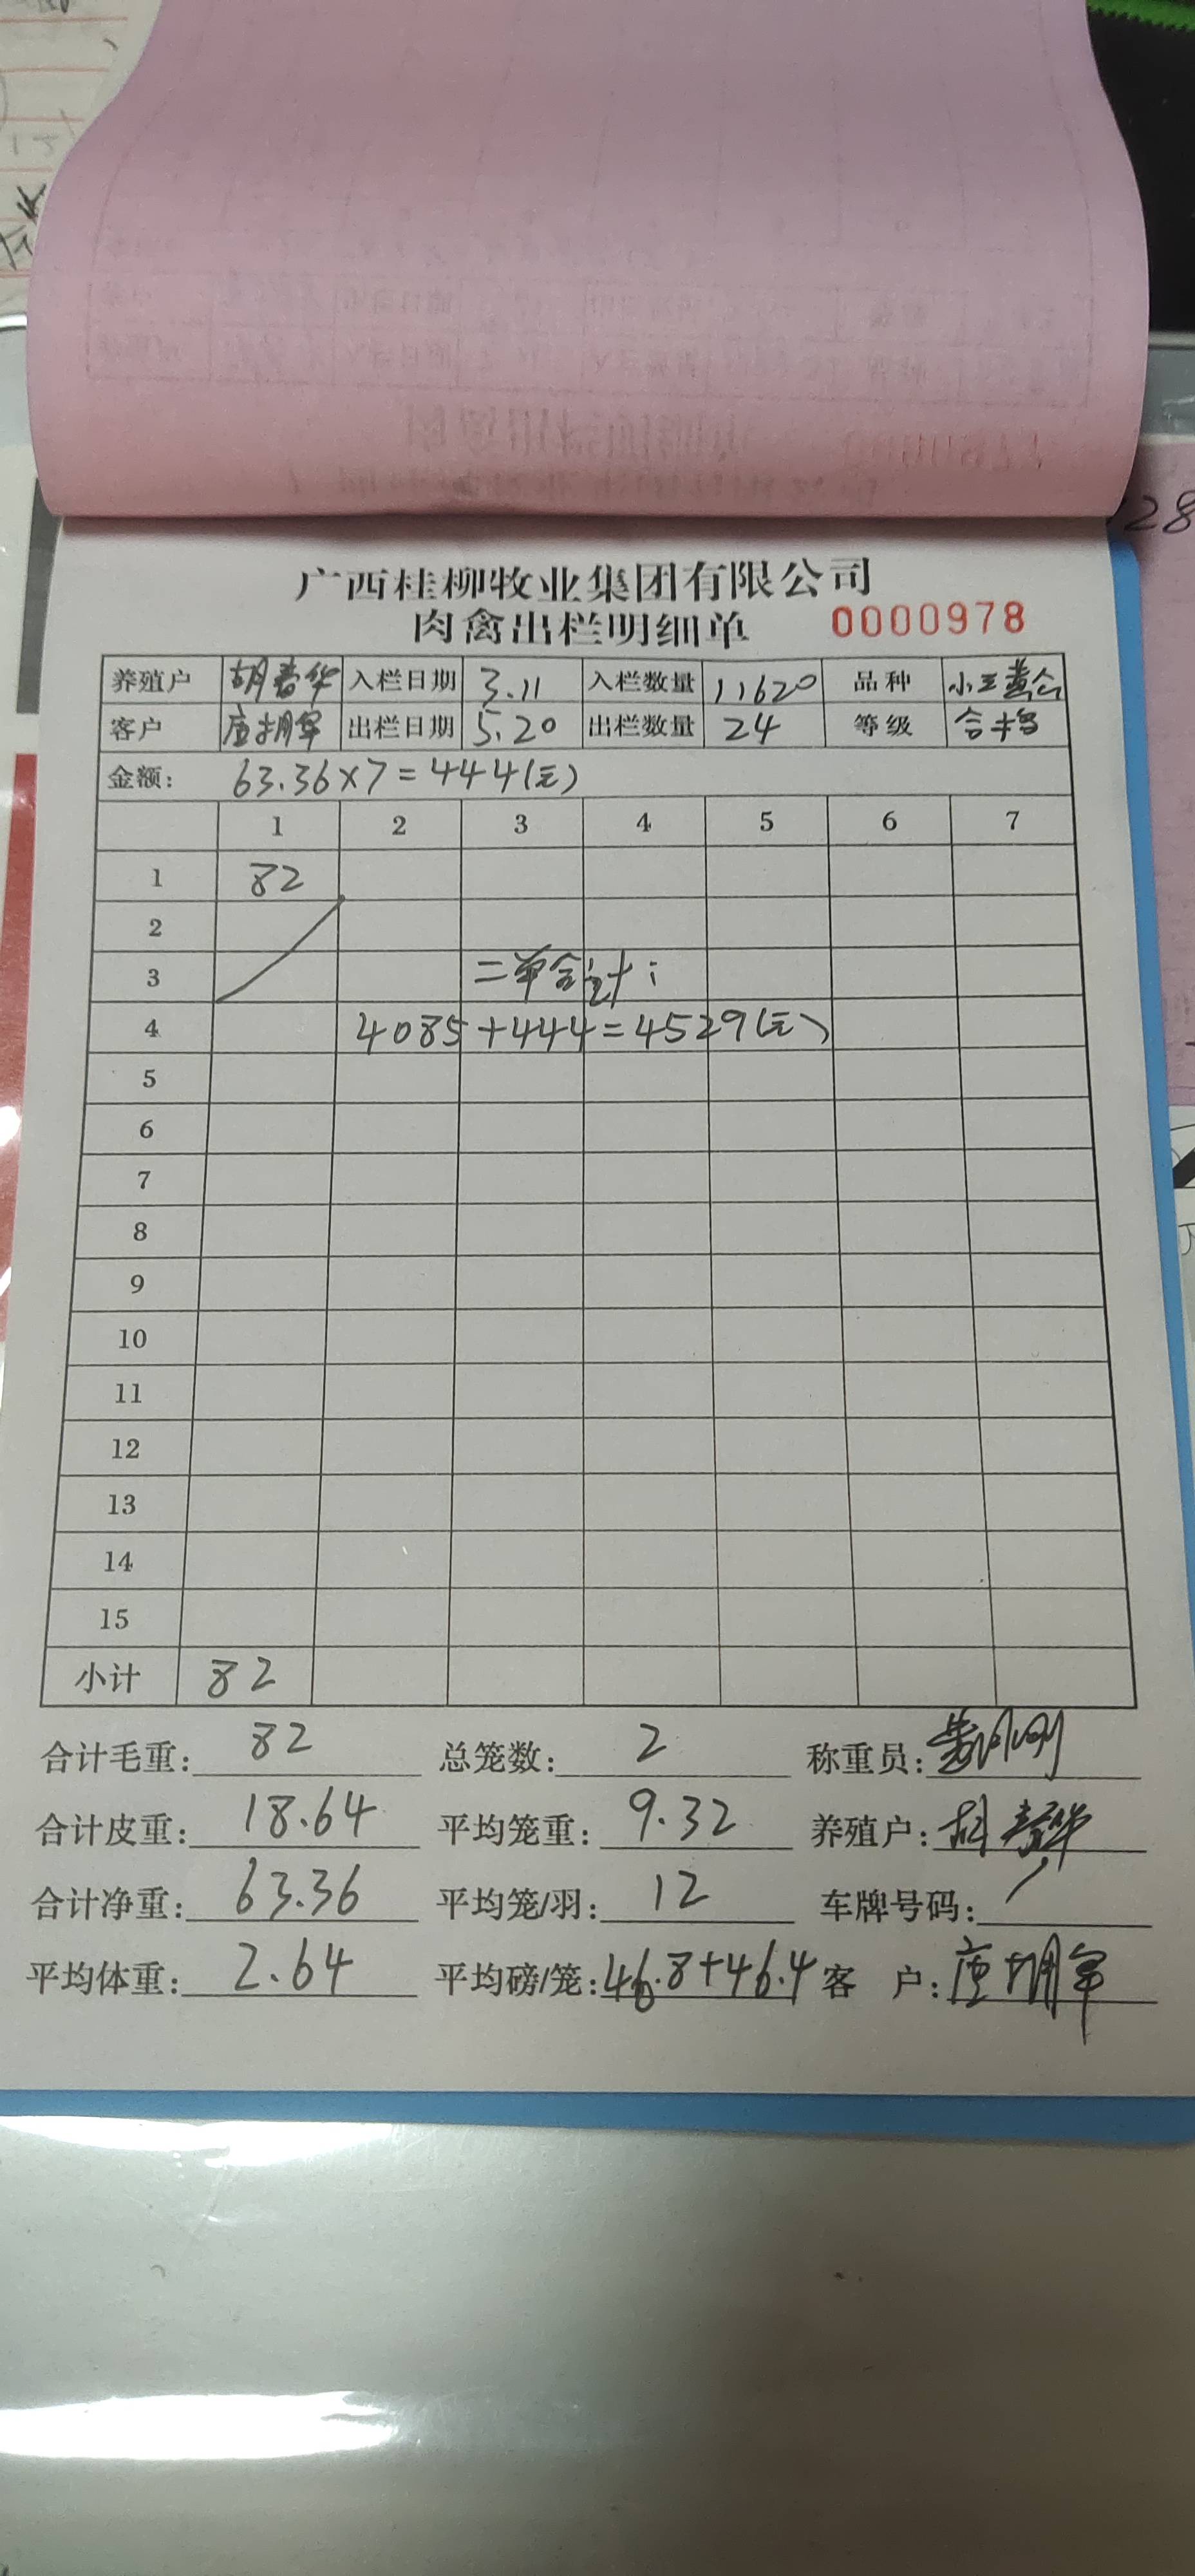 广西桂柳牧业集团有限公司
肉禽出栏明细单 0000978
养殖户 胡春华 入栏日期 3.11 入栏数量 11620 品种 小三黄
客户 唐拥军 出栏日期 5.20 出栏数量 24 等级 合格
金额: 63.36×7=444(元)
1 2 3 4 5 6 7
1 82
2
3 二单合计:
4 4085+444=4529(元)
5
6
7
8
9
10
11
12
13
14
15
小计 82
合计毛重: 82 总笼数: 2 称重员:
合计皮重: 18.64 平均笼重: 9.32 养殖户: 胡春华
合计净重: 63.36 平均笼/羽: 12 车牌号码: /
平均体重: 2.64 平均磅/笼: 46.8+46.4 客 户: 唐拥军
28